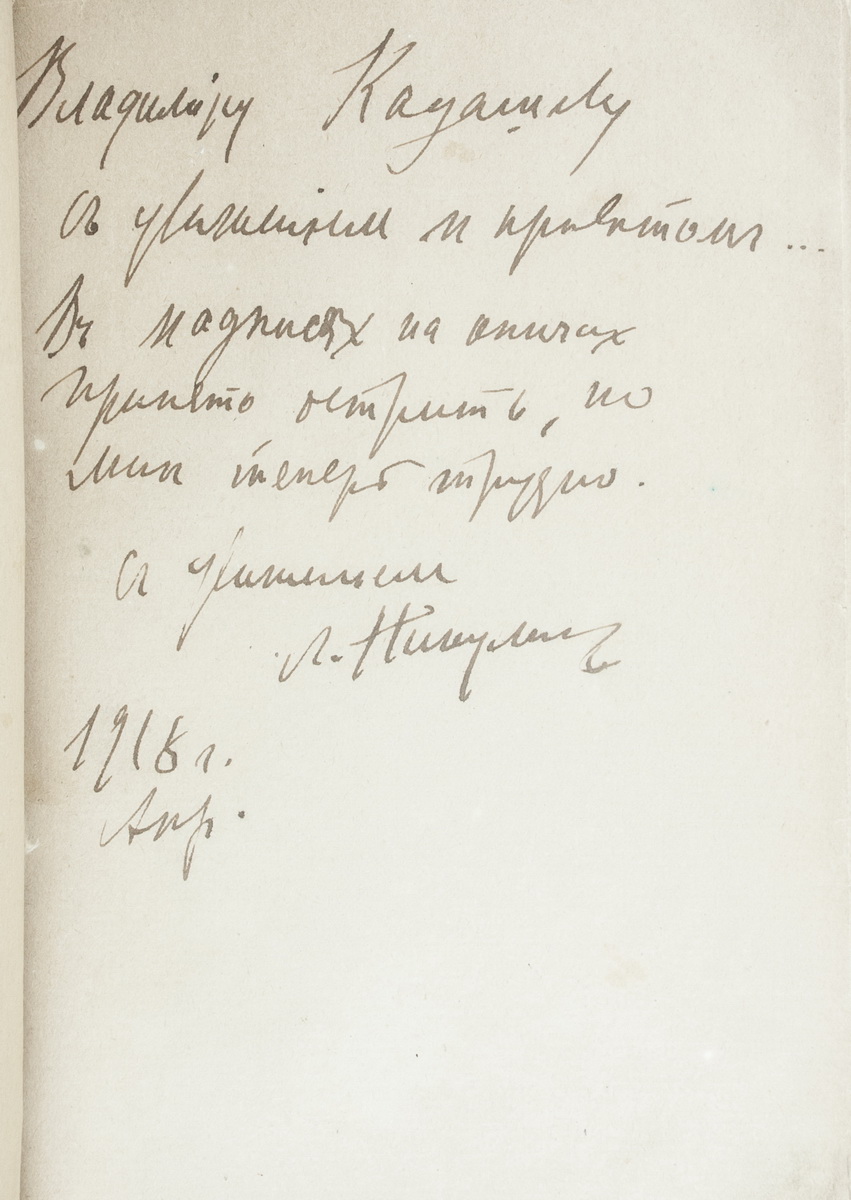 Владимiру Кадашеву
съ уваженiем и приветомъ...
Въ надписях на книгах
принято острить, но
мне теперь трудно.
С уважением
Л. Никулинъ
1918 г.
Апр.